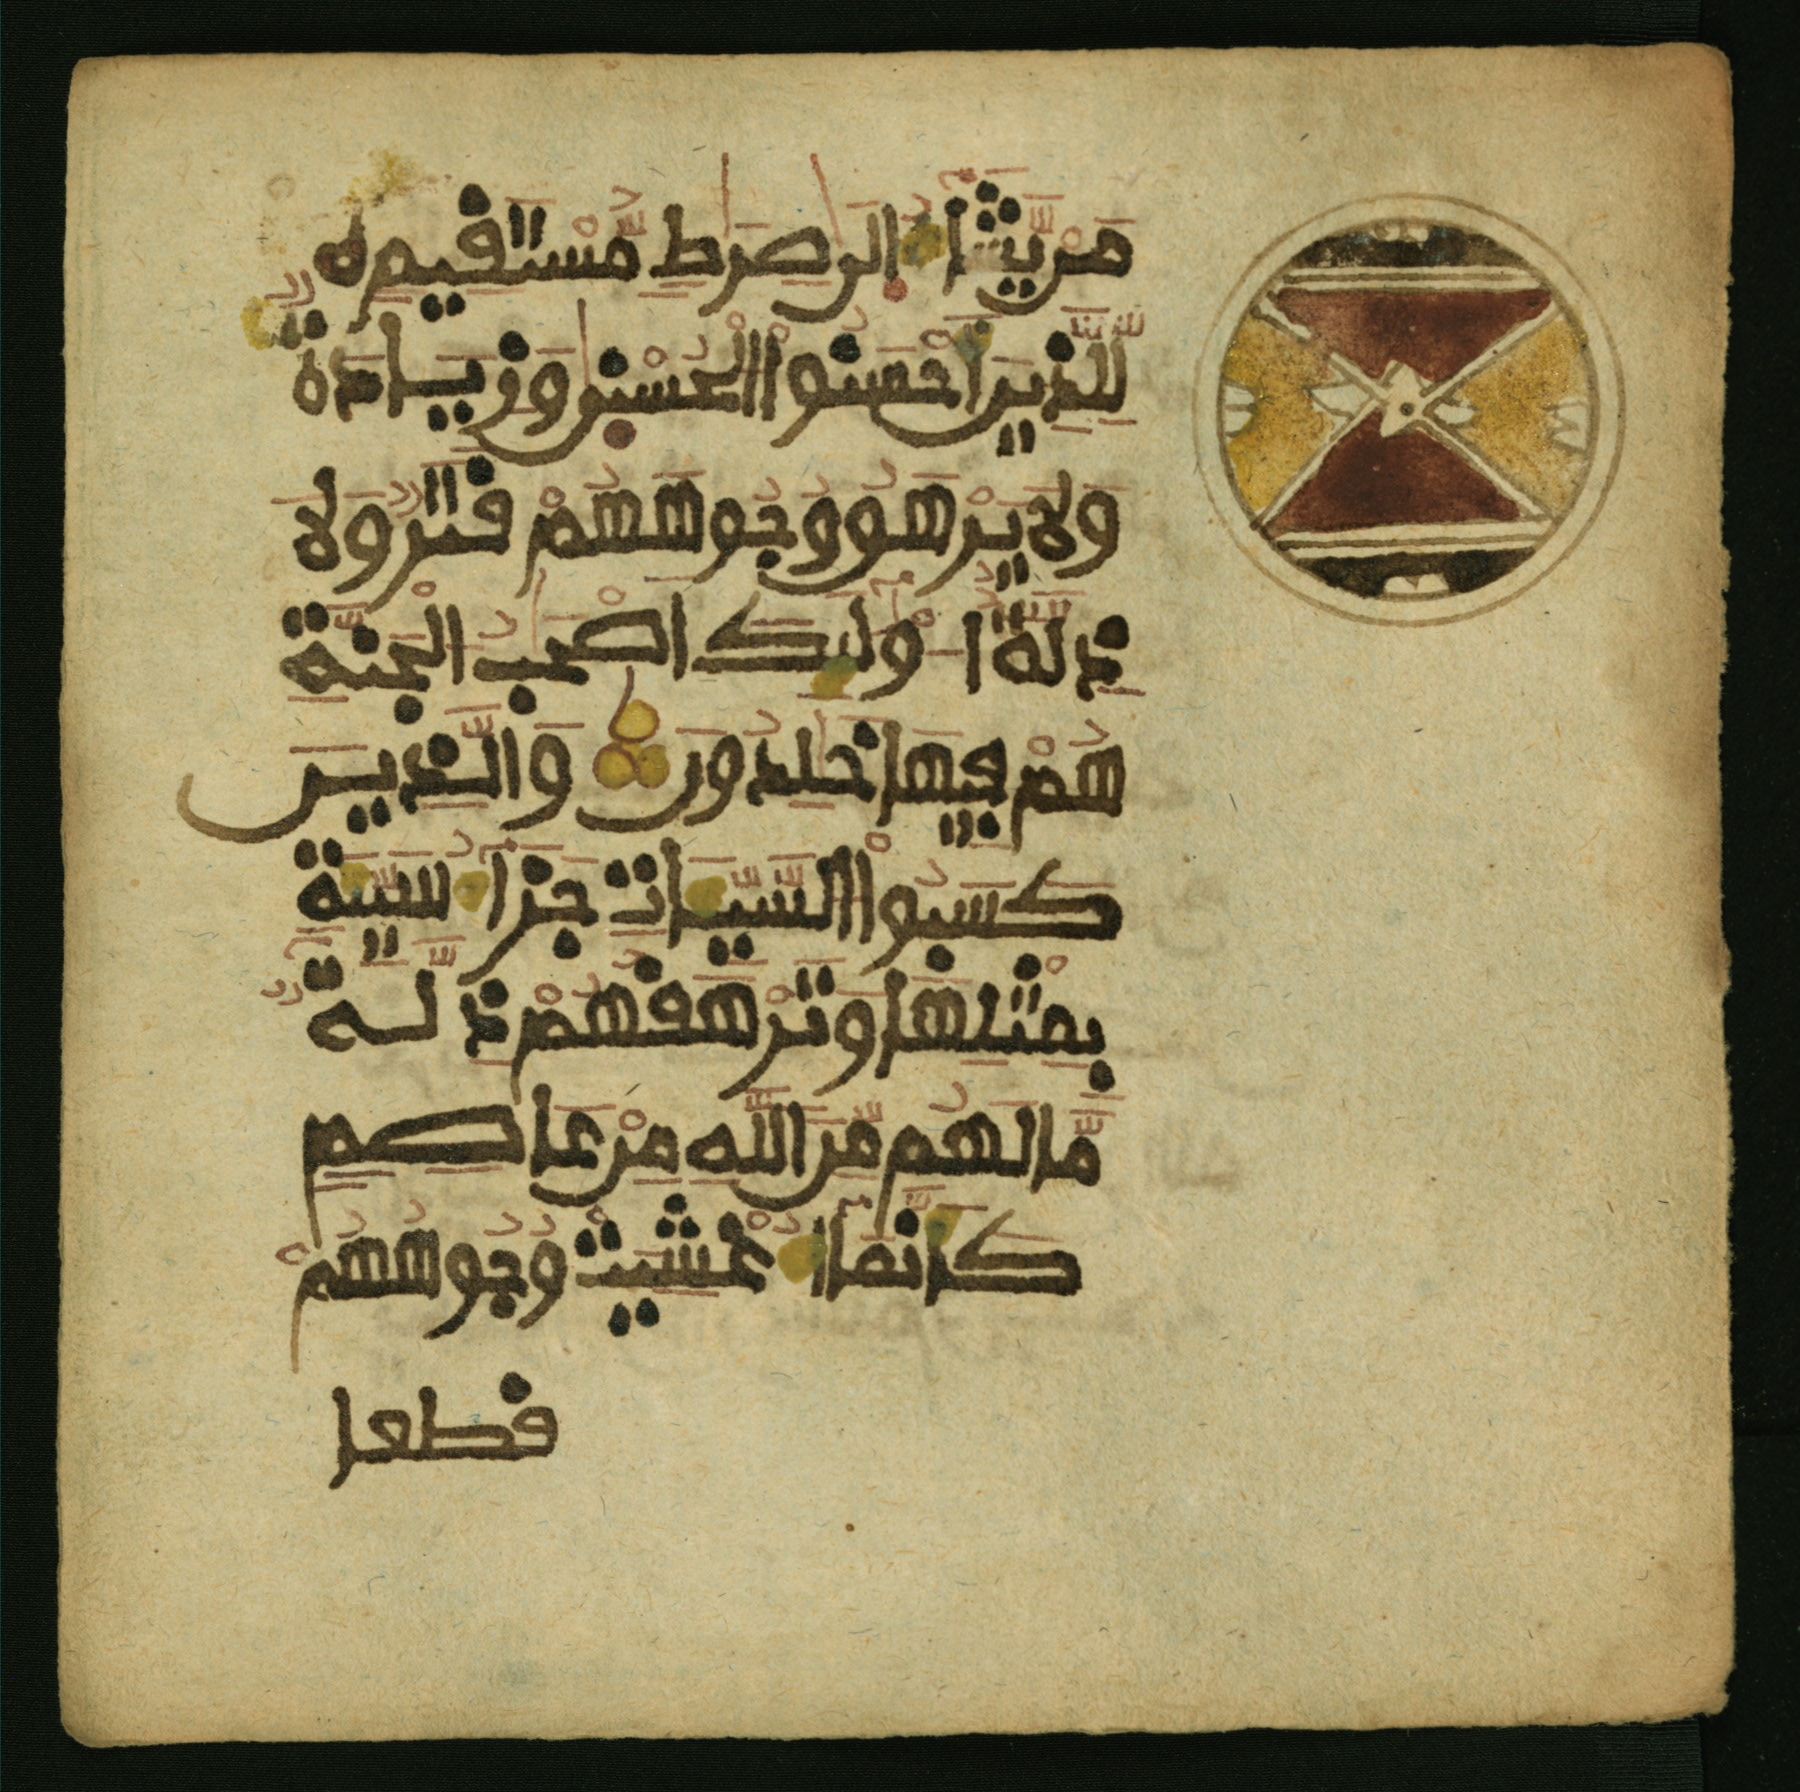 مَنْ يَّشَآءُ اِلَىٰ صِرَٰطٍ مُّسْتَقِيمٍ ه
لِّلَّذِينَ أَحْسَنُوا۟ الْحُسْنَىٰ وَزِيَادَةٌ
وَلَا يَرْهَقُ وُجُوهَهُمْ قَتَرٌ وَلَا
ذِلَّةٌ ا۟وْلَٰٓئِكَ أَصْحَٰبُ الْجَنَّةِ
هُمْ فِيهَا خَٰلِدُونَ وَالَّذِينَ
كَسَبُوا۟ السَّيِّـَٔاتِ جَزَآءُ سَيِّئَةٍ
بِمِثْلِهَا وَتَرْهَقُهُمْ ذِلَّةٌ
مَّا لَهُم مِّنَ اللَّهِ مِنْ عَاصِمٍ
كَأَنَّمَآ أُغْشِيَتْ وُجُوهُهُمْ
قطعا